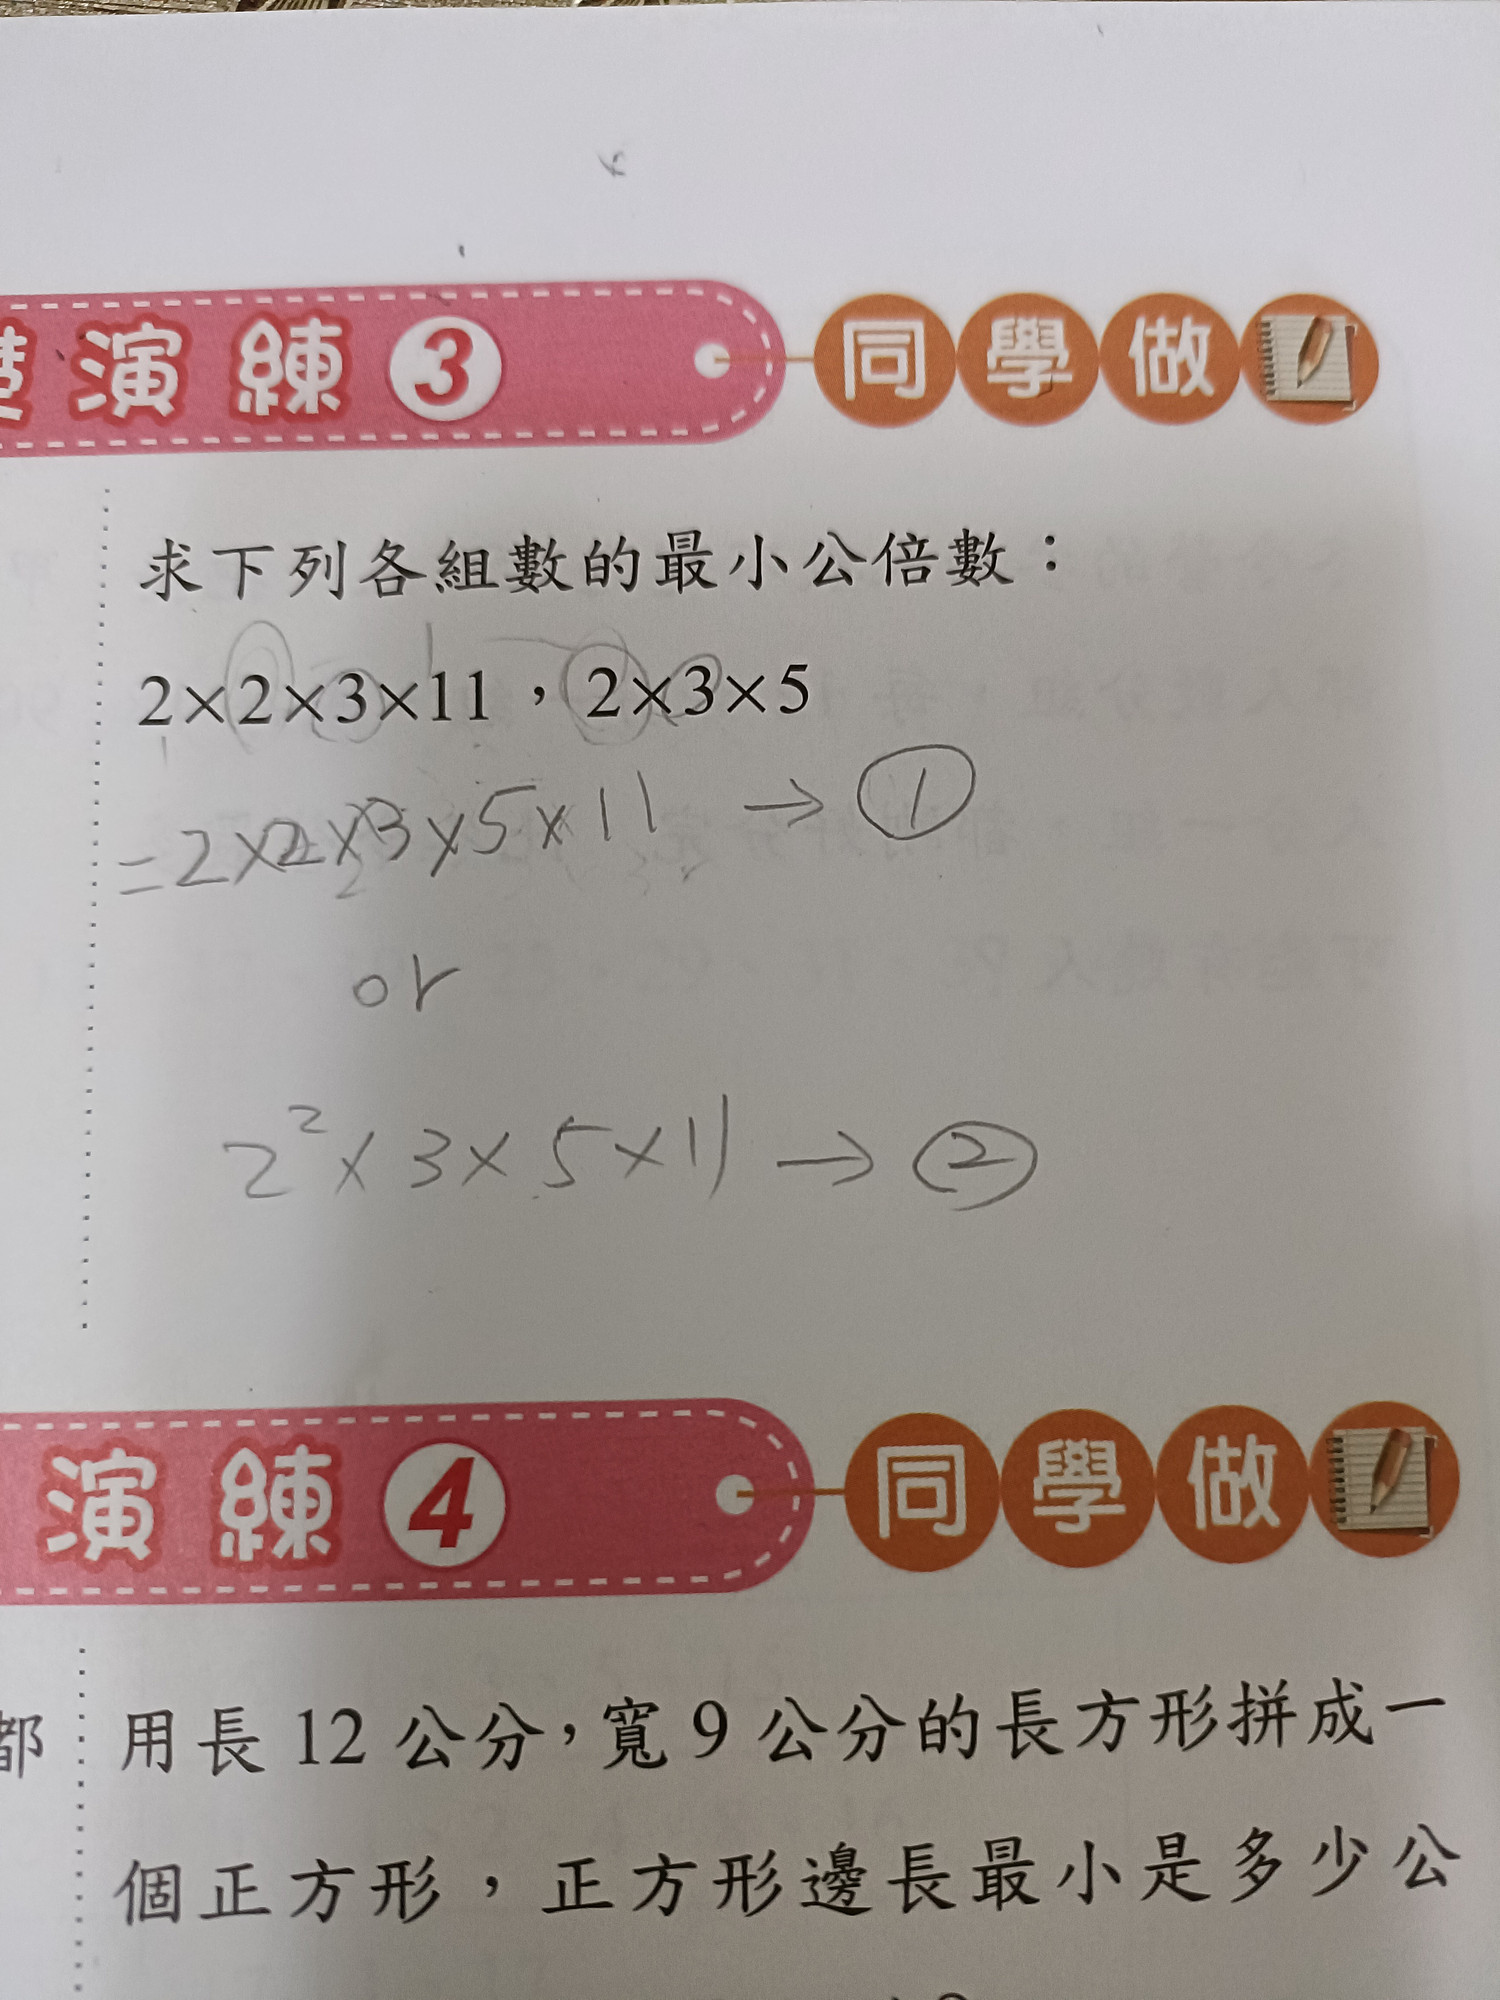 演練3 同學做
求下列各組數的最小公倍數：
2×2×3×11，2×3×5
=2×2×3×5×11 → ①
or
2²×3×5×11 → ②
演練4 同學做
都 用長12公分，寬9公分的長方形拼成一
個正方形，正方形邊長最小是多少公